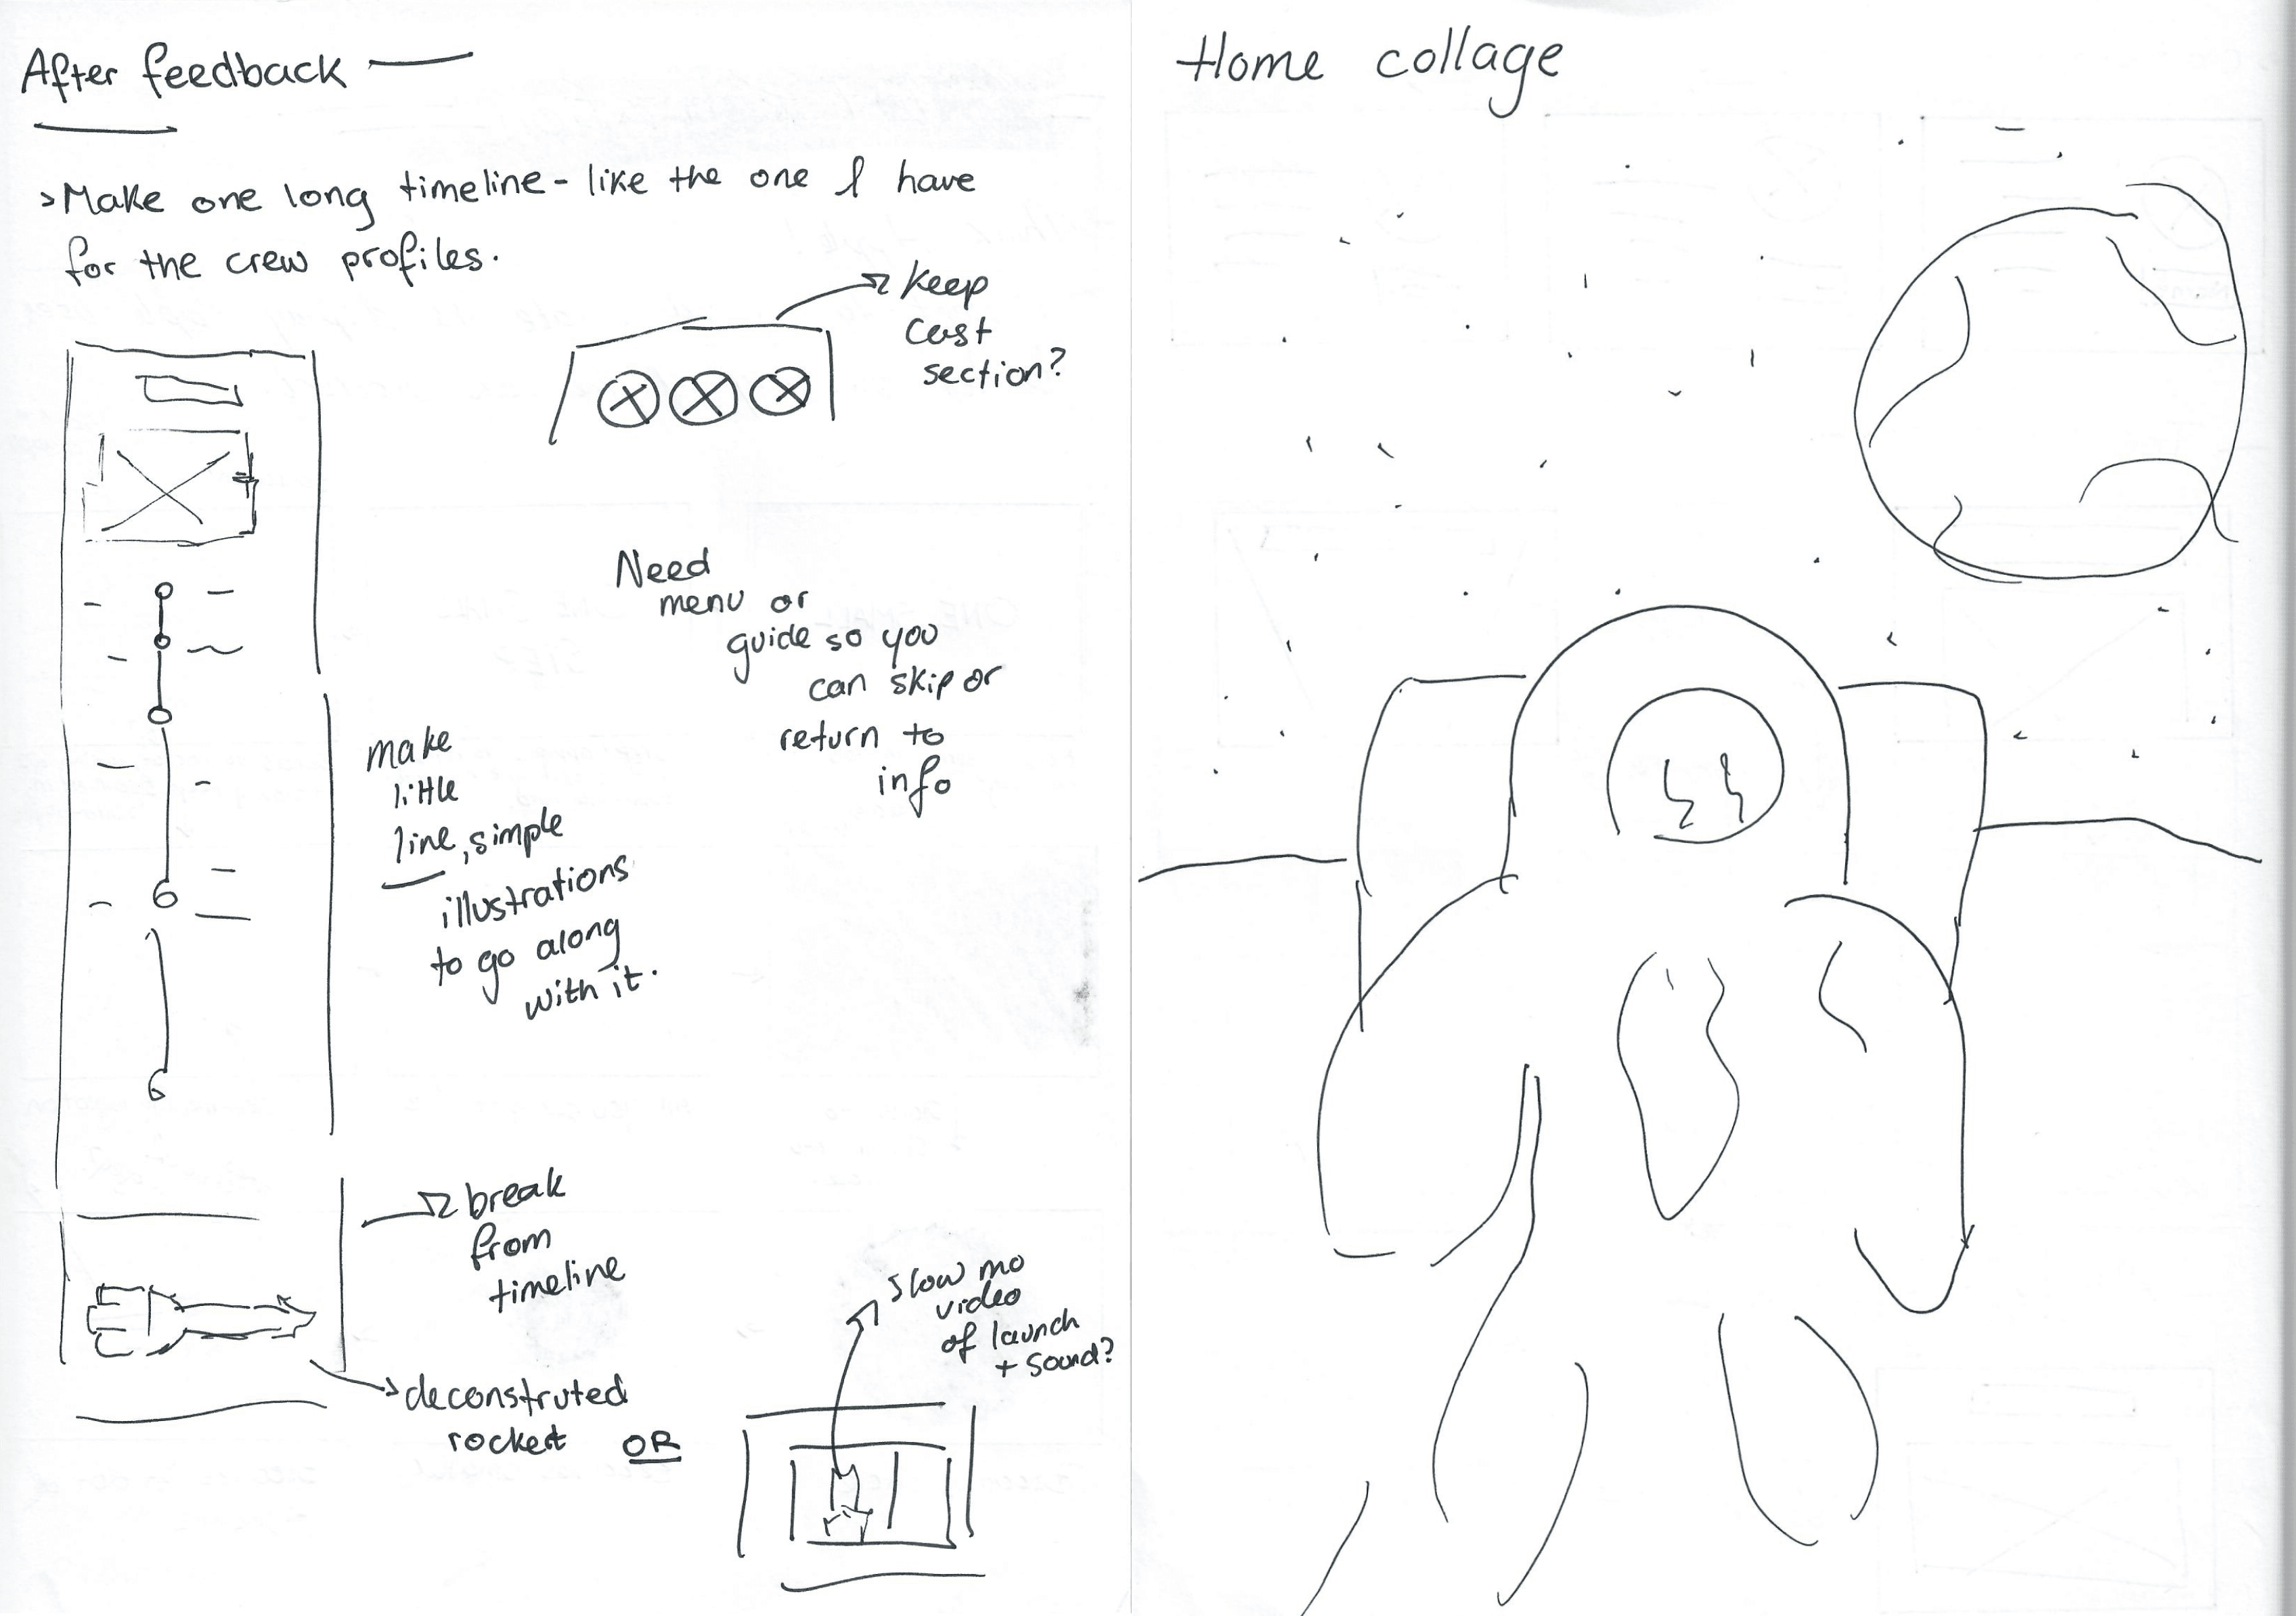 After feedback —
>Make one long timeline - like the one I have
for the crew profiles.
Keep
cast
section?
Need
menu or
guide so you
can skip or
return to
info
make
little
line, simple
illustrations
to go along
with it.
break
from
timeline
deconstruted
rocket OR
Slow mo
video
of launch
+ sound?
Home collage